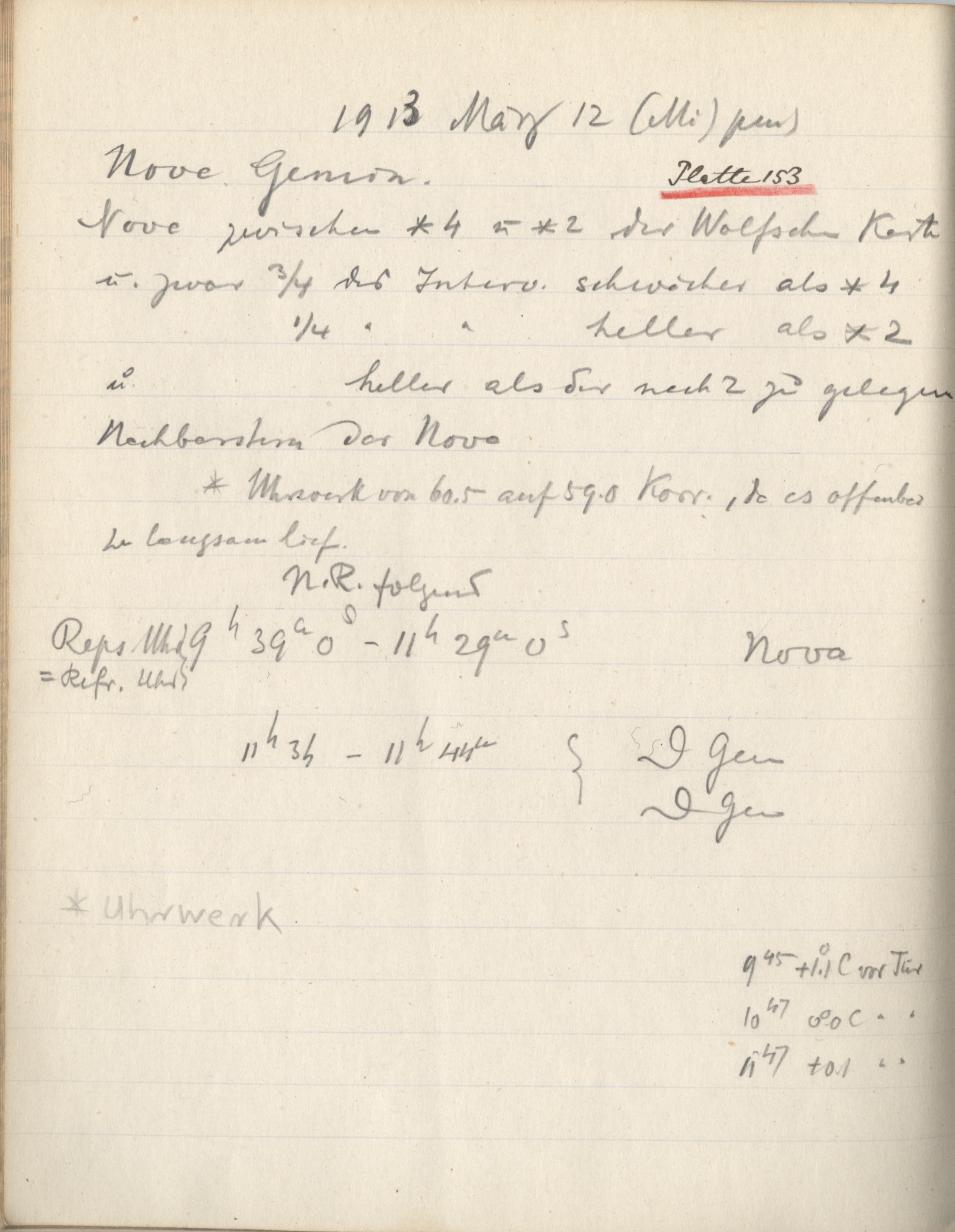 1913 März 12 (Mi) pm
Nova Gemin.
Platte 153
Nova zwischen *4 u *2 der Wolfschen Karte
u. zwar 3/4 des Interv. schwächer als *4
1/4 " " heller als *2
u. heller als der nach 2 zu gelegen
Nachbarstern der Nova
* Uhrwerk von 60.5 auf 59.0 Korr., da es offenbar
zu langsam lief.
N.R. folgend
Reps. Uhr 9h 39m 0s – 11h 29m 0s Nova
= Refr. Uhr
11h 3h – 11h 44m } Gem
Gem
* Uhrwerk
9 45 +1.°1 C vor Tür
10 47 0°.0 C " "
11 47 +0.1 " "